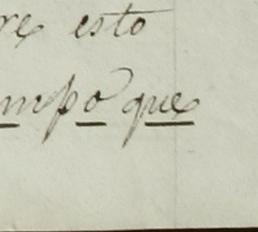 re esto
mpo que